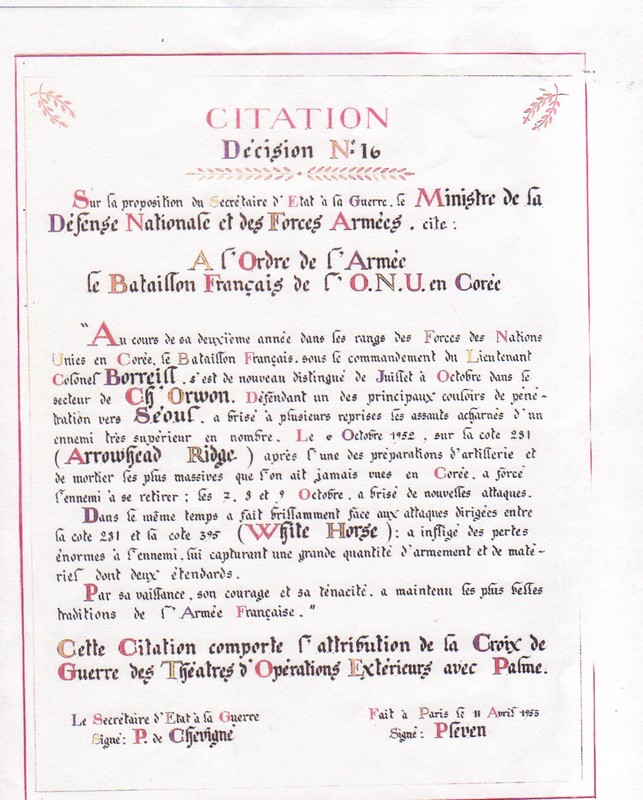 CITATION
Décision N° 16
Sur la proposition du Secrétaire d'Etat à la Guerre, le Ministre de la
Défense Nationale et des Forces Armées, cite :
A l'Ordre de l'Armée
le Bataillon Français de l'O.N.U. en Corée
"Au cours de sa deuxième année dans les rangs des Forces des Nations
Unies en Corée, le Bataillon Français, sous le commandement du Lieutenant
Colonel Borreill, s'est de nouveau distingué de Juillet à Octobre dans le
secteur de Ch'Orwon. Défendant un des principaux couloirs de péné-
tration vers Séoul, a brisé à plusieurs reprises les assauts acharnés d'un
ennemi très supérieur en nombre. Le 6 Octobre 1952, sur la cote 281
(Arrowhead Ridge) après l'une des préparations d'artillerie et
de mortier les plus massives que l'on ait jamais vues en Corée, a forcé
l'ennemi à se retirer ; les 7, 8 et 9 Octobre, a brisé de nouvelles attaques.
Dans le même temps a fait brillamment face aux attaques dirigées entre
la cote 281 et la cote 395 (White Horse) ; a infligé des pertes
énormes à l'ennemi, lui capturant une grande quantité d'armement et de maté-
riel dont deux étendards.
Par sa vaillance, son courage et sa ténacité, a maintenu les plus belles
traditions de l'Armée Française."
Cette Citation comporte l'attribution de la Croix de
Guerre des Théatres d'Opérations Extérieurs avec Palme.
Le Secrétaire d'Etat à la Guerre
Signé : P. de Chevigné
Fait à Paris le 11 Avril 1953
Signé : Pleven